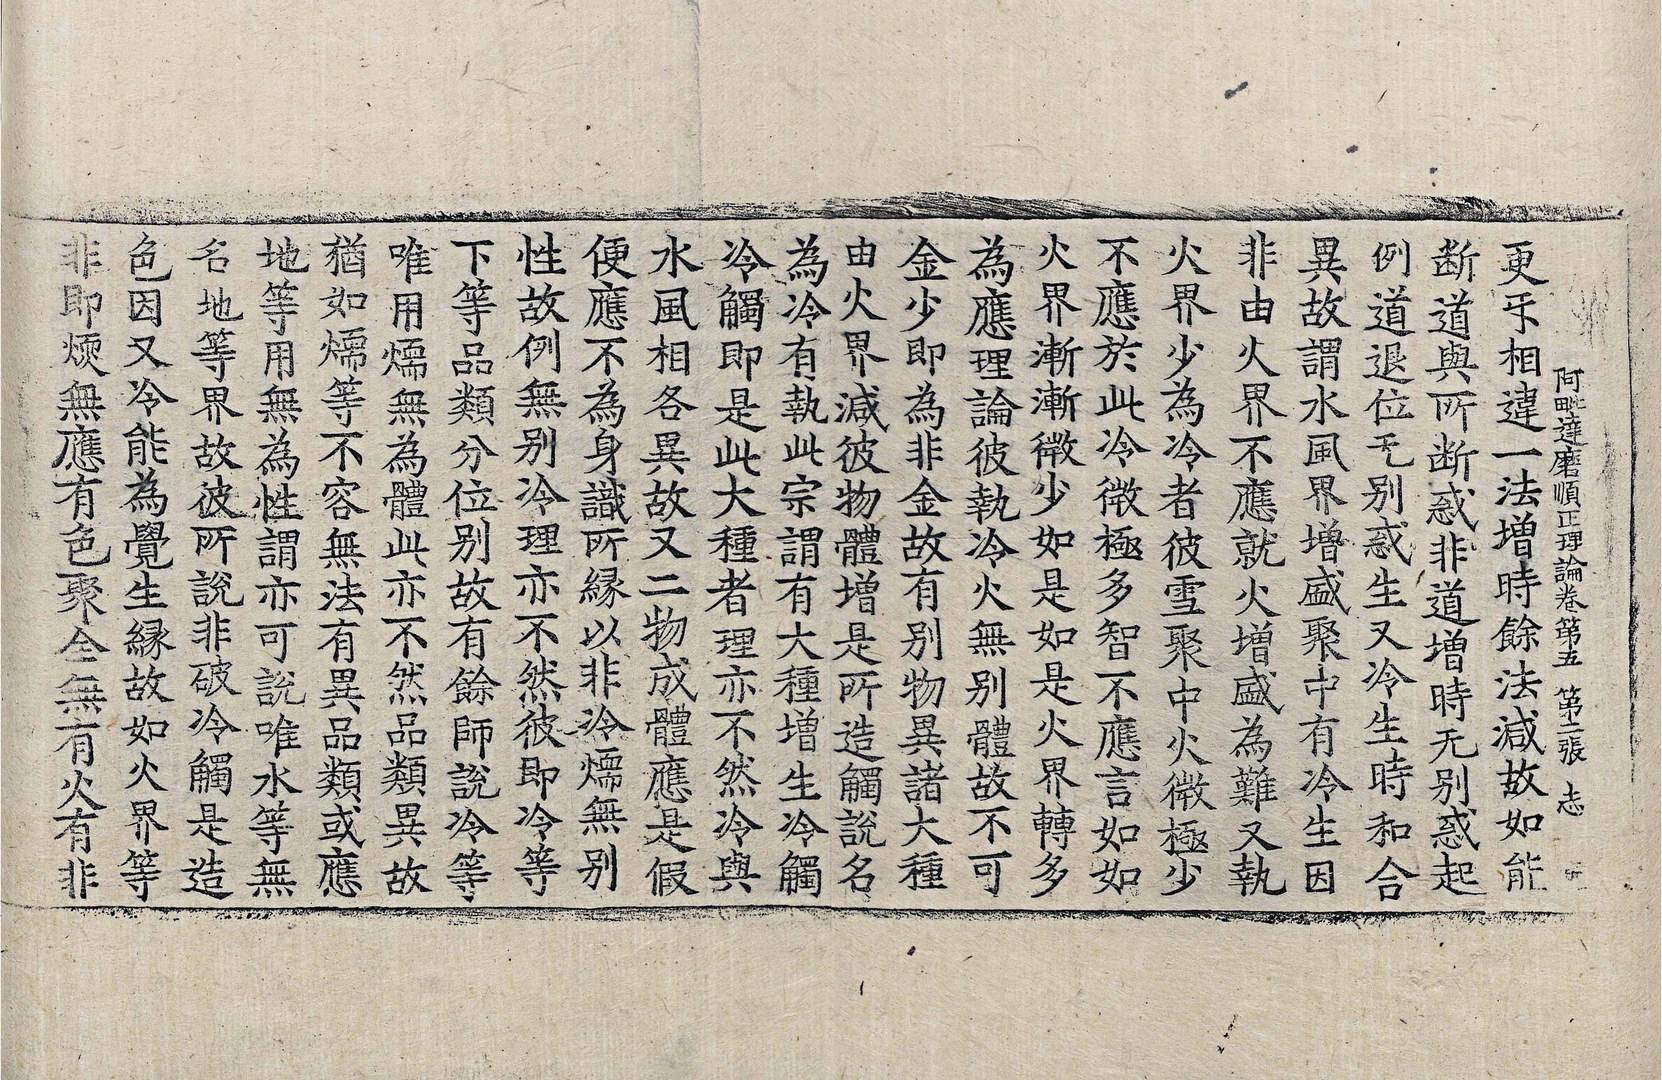 阿毗達磨順正理論卷第五 第二張 志
更乐相違一法増時餘法減故如能
断道與所断惑非道増時无别惑起
例道退位无别惑生又冷生時和合
異故謂水風界増盛聚中有冷生因
非由火界不應就火増盛為難又執
火界少為冷者彼雪聚中火微極少
不應於此冷微極多智不應言如如
火界漸漸微少如是如是火界轉多
為應理論彼執冷火無别體故不可
金少即為非金故有别物異諸大種
由火界減彼物體増是所造觸說名
為冷有執此宗謂有大種増生冷觸
冷觸即是此大種者理亦不然冷與
水風相各異故又二物成體應是假
便應不為身識所縁以非冷煗無别
性故例無别冷理亦不然彼即冷等
下等品類分位别故有餘師說冷等
唯用煗無為體此亦不然品類異故
猶如煗等不容無法有異品類或應
地等用無為性謂亦可說唯水等無
名地等界故彼所說非破冷觸是造
色因又冷能為覺生縁故如火界等
非即煗無應有色聚全無有火有非